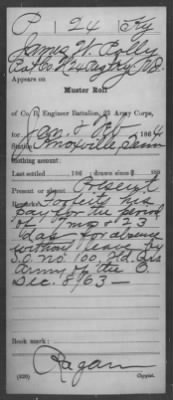 P 24 Ky
James W. Polly
Pvt. Co. K 24 Regt Ky
Appears on
Muster Roll
of Co. E, Engineer Battalion, 23 Army Corps,
for Jan & Feb 1864
Station Knoxville, Tenn
Nothing amount:
Last settled 186 ; drawn since 186
Present or absent Present
Remarks: Forfeits his
pay for the period
of 1 mo & 23
das for absence
without leave by
S.O. No 100, Hd. Qrs
Army of the O.
Dec. 8/63 —
Book mark:
Ragan
Copyist.